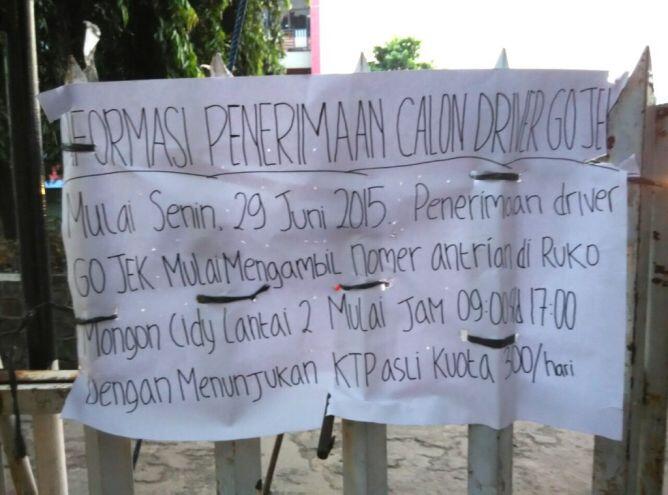 INFORMASI PENERIMAAN CALON DRIVER GO JEK
Mulai Senin, 29 Juni 2015. Penerimaan driver
GO JEK Mulai Mengambil nomer antrian di Ruko
Mongon Cidy Lantai 2 Mulai Jam 09:00 sd 17:00
Dengan Menunjukan KTP asli Kuota 300/hari